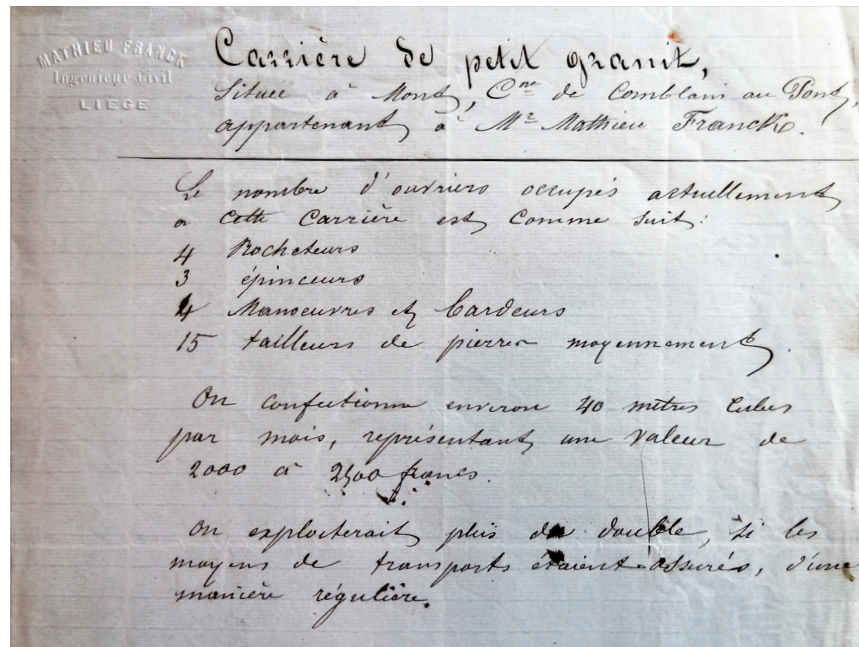 MATHIEU FRANCK
Ingenieur Civil
LIEGE
Carrière de petit granit,
Située à Mont, Cne de Comblain au Pont,
appartenant à Mr Mathieu Franck.
Le nombre d'ouvriers occupés actuellement
a cette Carrière est comme suit:
4 Rocheteurs
3 épinceurs
4 Manoeuvres et bardeurs
15 tailleurs de pierres moyennement.
On confectionne environ 40 mètres Cubes
par mois, représentant une Valeur de
2000 à 2500 francs.
On exploiterait plus du double, si les
moyens de transports étaient assurés, d'une
manière régulière.